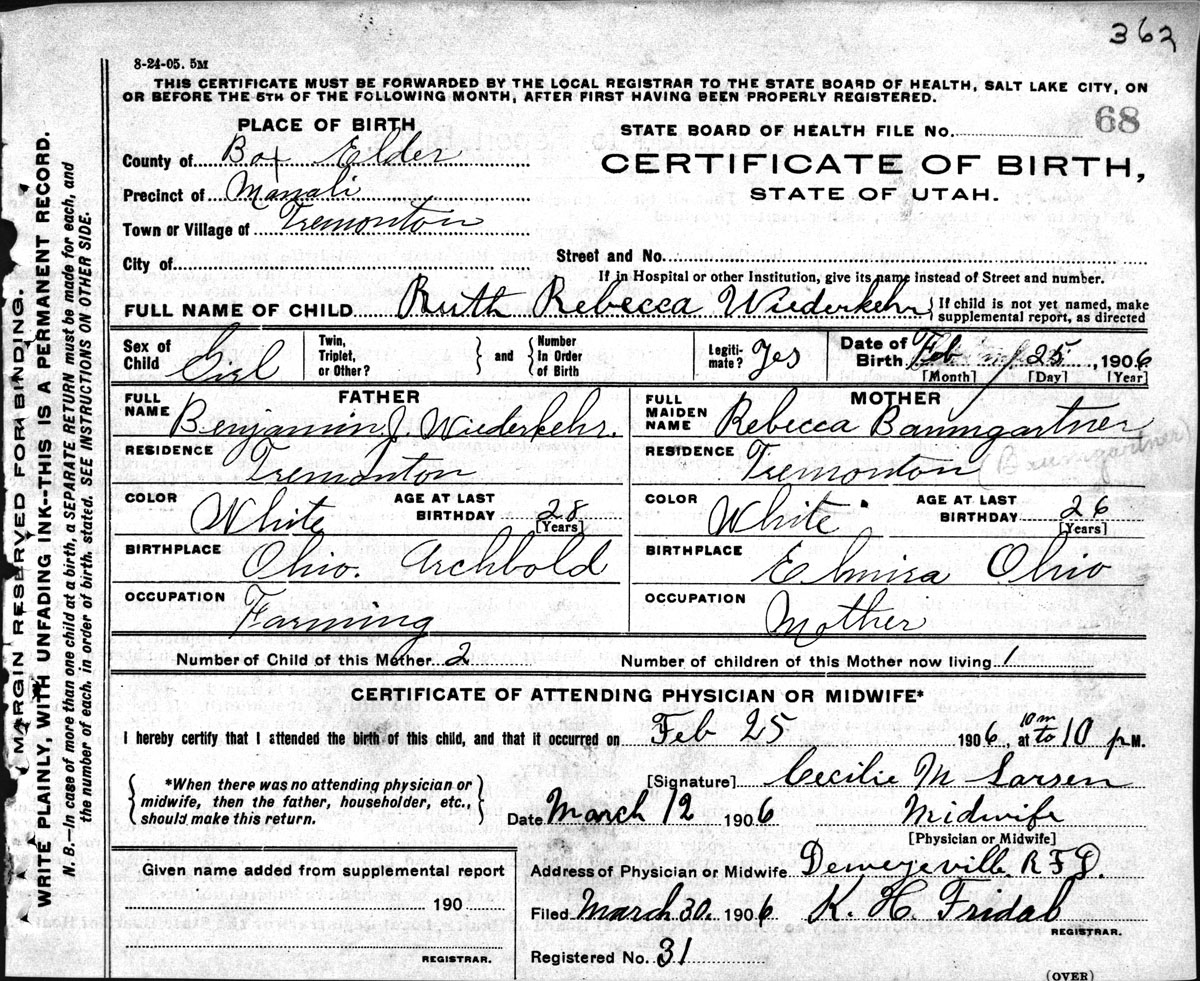 362
8-24-05. 5M
THIS CERTIFICATE MUST BE FORWARDED BY THE LOCAL REGISTRAR TO THE STATE BOARD OF HEALTH, SALT LAKE CITY, ON
OR BEFORE THE 5TH OF THE FOLLOWING MONTH, AFTER FIRST HAVING BEEN PROPERLY REGISTERED.
PLACE OF BIRTH
STATE BOARD OF HEALTH FILE No. 68
County of Box Elder
CERTIFICATE OF BIRTH,
Precinct of Manali
STATE OF UTAH.
Town or Village of Tremonton
City of
Street and No.
If in Hospital or other Institution, give its name instead of Street and number.
FULL NAME OF CHILD Ruth Rebecca Wiederkehr { If child is not yet named, make supplemental report, as directed
Sex of Child Girl Twin, Triplet, or Other? } and { Number In Order of Birth Legiti-mate? Yes Date of Birth Feb 25, 1906
[Month] [Day] [Year]
FATHER
MOTHER
FULL NAME Benjamin J. Wiederkehr.
FULL MAIDEN NAME Rebecca Baumgartner
RESIDENCE Tremonton
RESIDENCE Tremonton (Baumgartner)
COLOR White AGE AT LAST BIRTHDAY 28 [Years]
COLOR White AGE AT LAST BIRTHDAY 26 [Years]
BIRTHPLACE Ohio. Archbold
BIRTHPLACE Elmira Ohio
OCCUPATION Farming
OCCUPATION Mother
Number of Child of this Mother 2 Number of children of this Mother now living 1
CERTIFICATE OF ATTENDING PHYSICIAN OR MIDWIFE*
I hereby certify that I attended the birth of this child, and that it occurred on Feb 25 1906, at 10m to 10 P.M.
{ *When there was no attending physician or midwife, then the father, householder, etc., should make this return. }
[Signature] Cecilie M Larsen
Date March 12 1906 Midwife
[Physician or Midwife]
Given name added from supplemental report
Address of Physician or Midwife Deweyeville R F D.
190
Filed March 30. 1906 K. H. Fridal
REGISTRAR.
REGISTRAR.
Registered No. 31
(OVER)
MARGIN RESERVED FOR BINDING.
WRITE PLAINLY, WITH UNFADING INK--THIS IS A PERMANENT RECORD.
N. B.—In case of more than one child at a birth, a SEPARATE RETURN must be made for each, and
the number of each, in order of birth, stated. SEE INSTRUCTIONS ON OTHER SIDE.